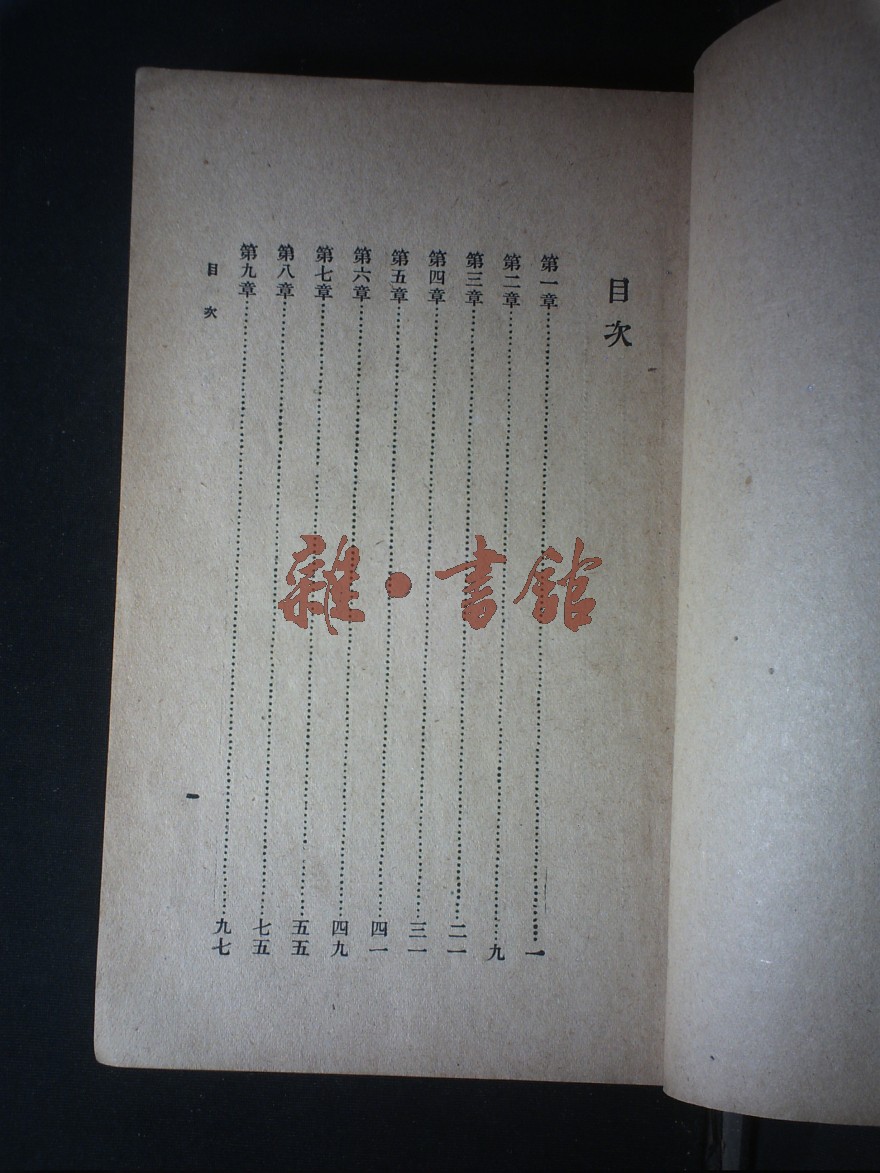 目次
第一章……一
第二章……九
第三章……二一
第四章……三一
第五章……四一
第六章……四九
第七章……五五
第八章……七五
第九章……九七
目次
一
雜·書館